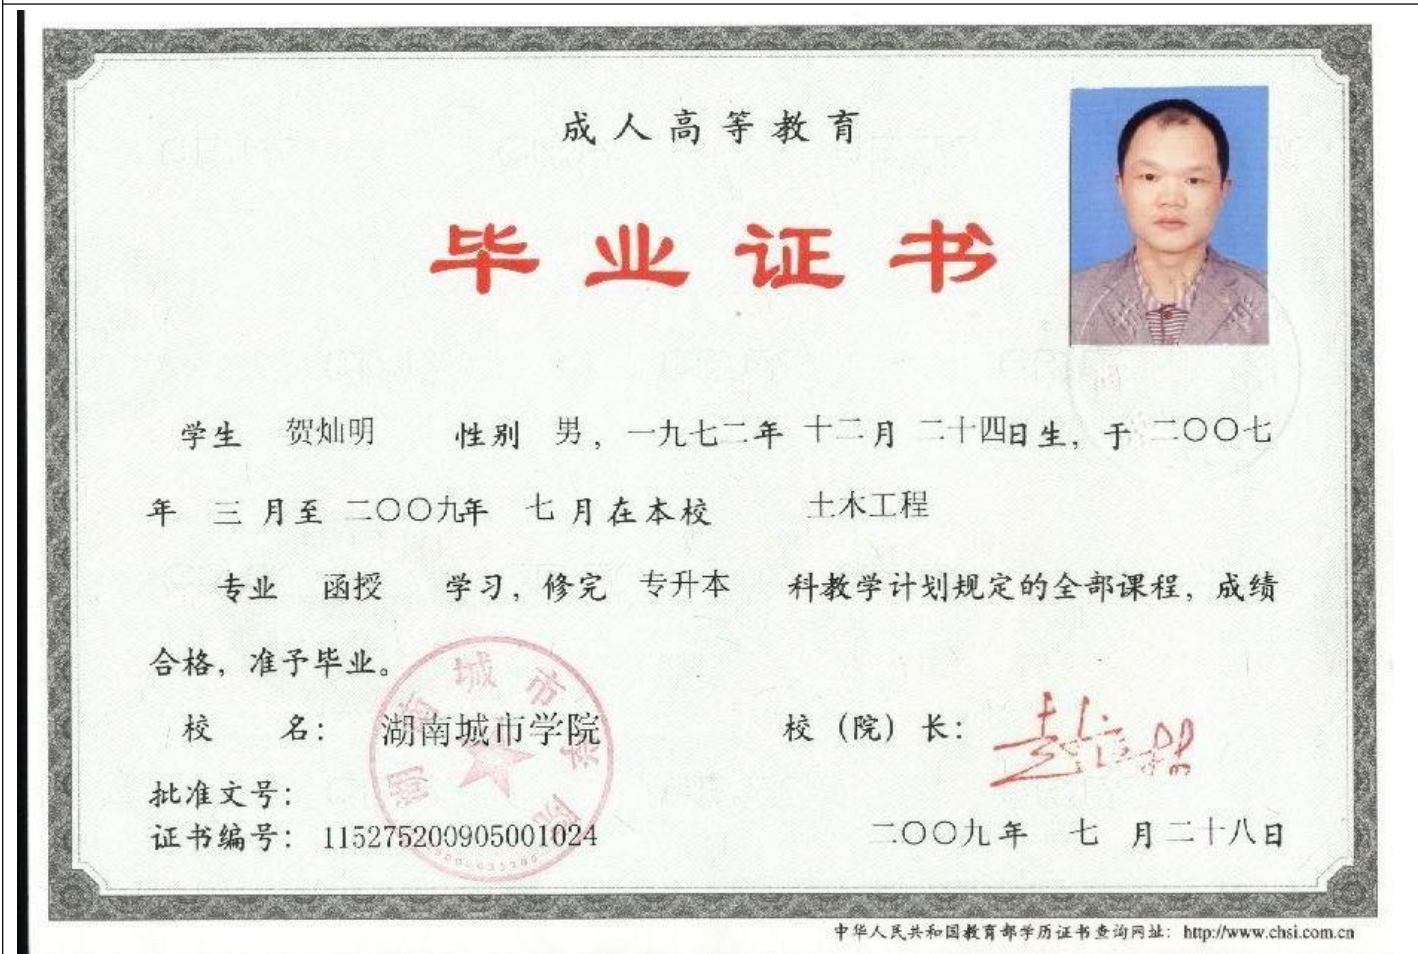 成人高等教育
毕业证书
学生 贺灿明 性别 男，一九七二年 十二月 二十四日生，于 二〇〇七
年 三 月至 二〇〇九年 七 月在本校 土木工程
专业 函授 学习，修完 专升本 科教学计划规定的全部课程，成绩
合格，准予毕业。
校 名： 湖南城市学院 校（院）长：
湖南城市学院
批准文号：
证书编号： 115275200905001024
二〇〇九年 七 月二十八日
中华人民共和国教育部学历证书查询网址： http://www.chsi.com.cn